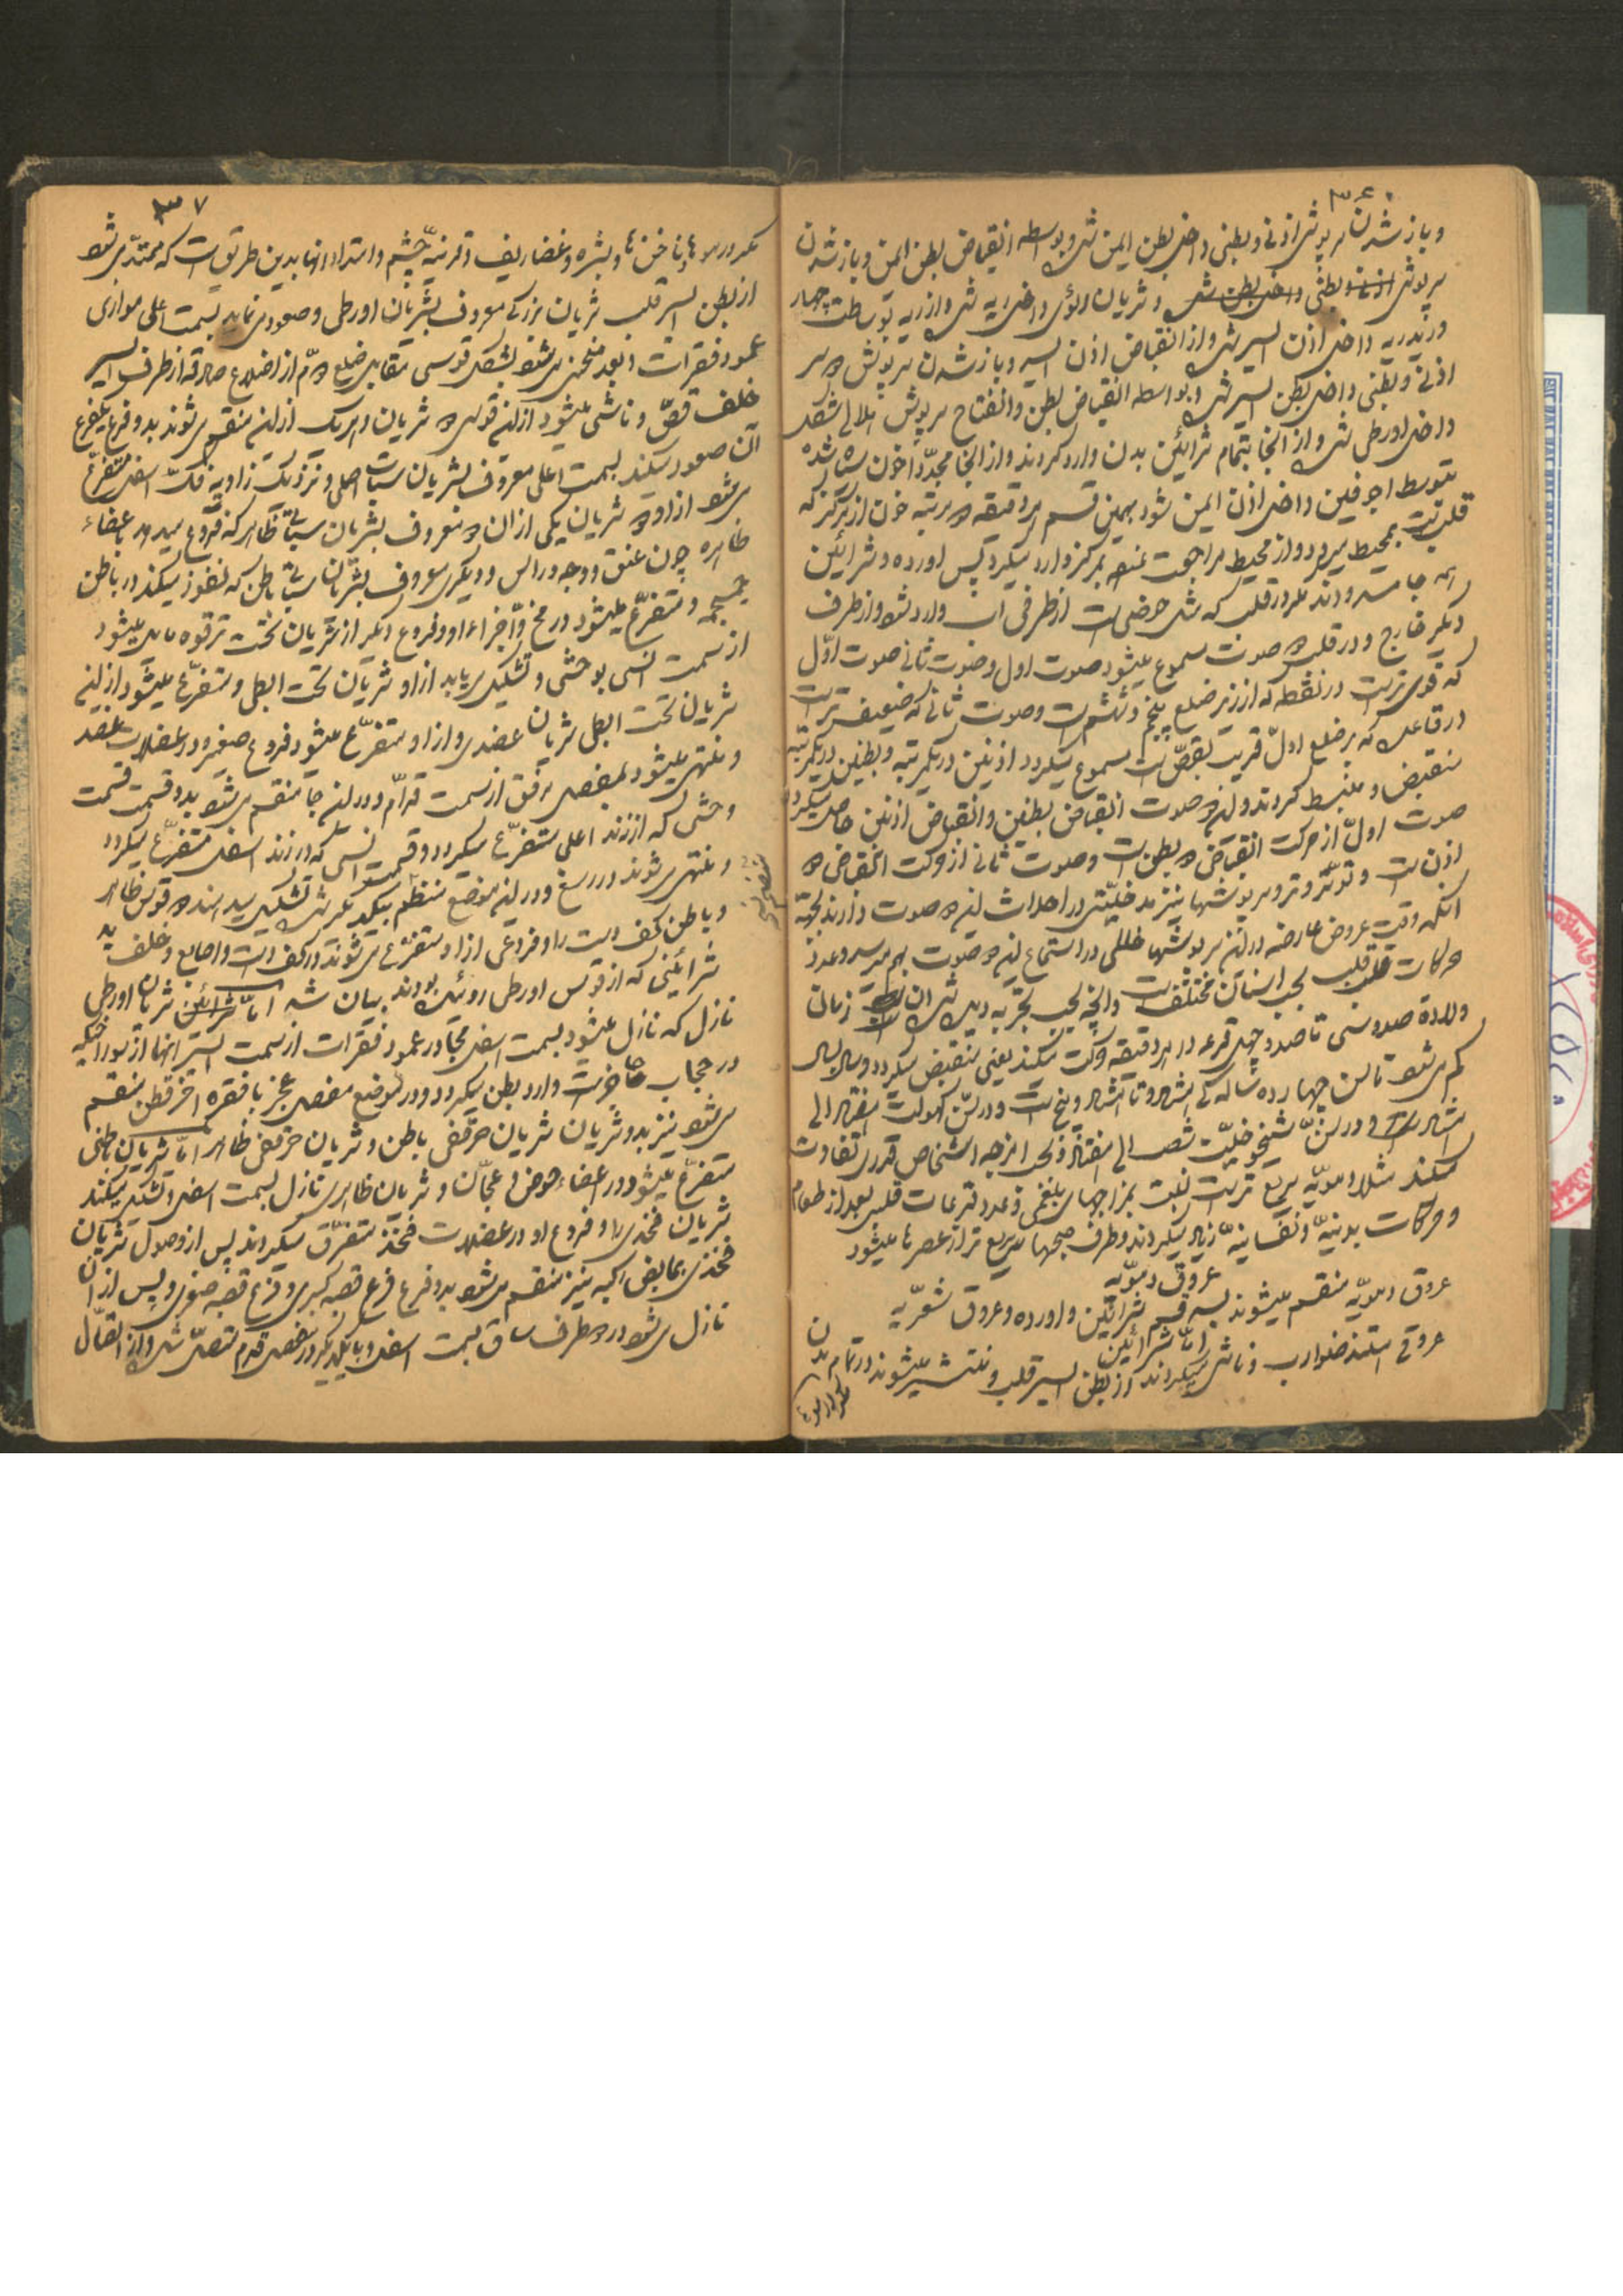 ۳۶
و باز شدن سرپوش اذنی و بطنی داخل بطن ایمن شده و بواسطه انقباض بطن ایمن و باز شدن
سرپوش بطنی و شریان داخل ریه شده و از ریه بوساطت چهار
ورید ریه داخل اذن ایسر شده و از انقباض اذن ایسر و باز شدن سرپوش
اذنی و بطنی داخل بطن ایسر شده و بواسطه انقباض بطن و انفتاح سرپوش هلالی شکل
داخل اورطی شده و از آنجا بتمام شرائین بدن وارد گردند و از آنجا مجدداً خون سیاه شده
بتوسط اجوفین داخل اذن ایمن شود بهمین قسم هر دقیقه مرتبه خون از مرکز که
قلب است بمحیط میرود و از محیط مراجعت نموده بمرکز وارد میگردد پس اورده و شرائین
همه جا در قلب که مثل حوضی است از طرفی آب وارد شود و از طرف
دیگر خارج و در قلب دو صوت مسموع میشود صوت اول و صوت ثانی صوت اوّل
که قوی تر است در نقطه که از زیر ضلع پنجم و ششم است و صوت ثانی که ضعیف تر است
در قاعده که بر ضلع اول قریب بقصّ است مسموع میگردد اذنین در یکمرتبه و بطنین در یکمرتبه
منقبض و منبسط گردند و این دو صوت انقباض بطنین و انقباض اذنین حاصل میگردد
صوت اول از حرکت انقباض دو بطن است و صوت ثانی از حرکت انقباض دو
اذن است و سرپوشها نیز مدخلیّتی در احداث این دو صوت دارند بجهة
آنکه وقت عروض عارضه در این سرپوشها خللی در استماع این دو صوت بهم میرسد و عدد
حرکات قلب بحسب اسنان مختلف است و آنچه بحسب تجربه دیده شده آن زمان
ولادة صد و سی تا صد و چهل قرعه در هر دقیقه حرکت میکند یعنی منقبض میگردد و سال بسال
کم می شود تا سن چهارده سالگی هشتاد و تا هشتاد و پنج است و در سنّ کهولت هفتاد الی
هشتاد و در سنّ شیخوخیّت شصت الی هفتاد و بحسب امزجه اشخاص قدری تفاوت
میکند مثلا دمویّه سریع تر است نسبت بمزاجهای بلغمی و عدد قرعات قلب بعد از طعام
و حرکات بدنیّه و نفسانیّه زیاد میگردند و طرف صبحها سریع تر از عصرها میشود
عروق دمویّه
عروق دمویّه منقسم میشوند بسه قسم شرائین و اورده و عروق شعریّه
امّا شرائین
عروقی هستند ضوارب و ناشی میگردند از بطن ایسر قلب و منتشر میشوند در تمام بدن
۳۷
مگر در موها و ناخن ها و بشره و غضاریف و قرنیّه چشم و امتداد انها بدین طریق است که ممتدّ می شود
از بطن ایسر قلب شریان بزرگی معروف بشریان اورطی و صعود می نماید بسمت اعلی موازی
عمود فقرات و بعد منحنی می شود بشکل قوسی مقابل ضلع دوّم از اضلاع صادقه از طرف ایسر
خلف قصّ و ناشی میشود از این قوس دو شریان و هر یک از این منقسم می شوند بدو فرع یکفرع
آن صعود میکند بسمت اعلی معروف بشریان سبات اصلی و نزدیک زاویه فکّ اسفل متفرّع
می شود از او دو شریان یکی از ان دو معروف بشریان سباتی ظاهر که فروع میدهد باعضاء
ظاهره چون عنق و وجه و راس و دیگری معروف بشریان سباتی باطن که نفوذ میکند در باطن
جمجمه و متفرّع میشود در مخ و اجزاء او و فروع دیگر از شریان تحت ترقوه میشود
از سمت انسی بوحشی و تشکیل می یابد از او شریان تحت ابطی و متفرّع میشود از این
شریان تحت ابطی شریان عضدی و از او متفرّع میشود فروع صغیره در عضلات عضد
و منتهی میشود بمفصل مرفق از سمت قدّام و در این جا منقسم می شود بدو قسمت قسمت
وحشی که از زند اعلی متفرّع میگردد و قسمت انسی که در زند اسفل متفرّع میگردد
و منتهی می شوند در رسغ و در این موضع منظم بیکدیگر شده تشکیل میدهند دو قوس ظاهر
و باطن کف دست را و فروعی از او متفرّع می شوند در کف دست و اصابع و خلف ید
شرائینی که از قوس اورطی روئیده بودند بیان شد امّا شرائین شریان اورطی
نازل که نازل میشود بسمت اسفل مجاور عمود فقرات از سمت ایسر انها از سوراخیکه
در حجاب حاجز است وارد بطن میگردد و در موضع مفصل عجز با فقره اخر قطن منقسم
می شود نیز بدو شریان شریان حرقفی باطن و شریان حرقفی ظاهر امّا شریان باطنی
متفرّع میشود در اعضاء حوض و عجان و شریان ظاهری نازل بسمت اسفل و تشکیل میکند
شریان فخذی را و فروع او در عضلات فخذ متفرّق میگردند پس از وصول شریان
فخذی بمابض رکبه نیز منقسم می شود بدو فرع فرع قصبه کبری و فرع قصبه صغری و پس از آن
نازل می شود در دو طرف ساق بسمت اسفل و با یکدیگر در مفصل قدم متصل شده و از اتصال